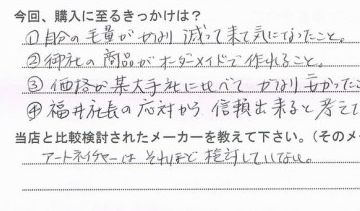 今回、購入に至るきっかけは？
①自分の毛量がかなり減って来て気になったこと。
②御社の商品がオーダーメイドで作れること。
③価格が某大手社に比べてかなり安かったこ
④福井社長の応対から信頼出来ると考えて
当店と比較検討されたメーカーを教えて下さい。（そのメー
アートネイチャーは それほど検討していない。